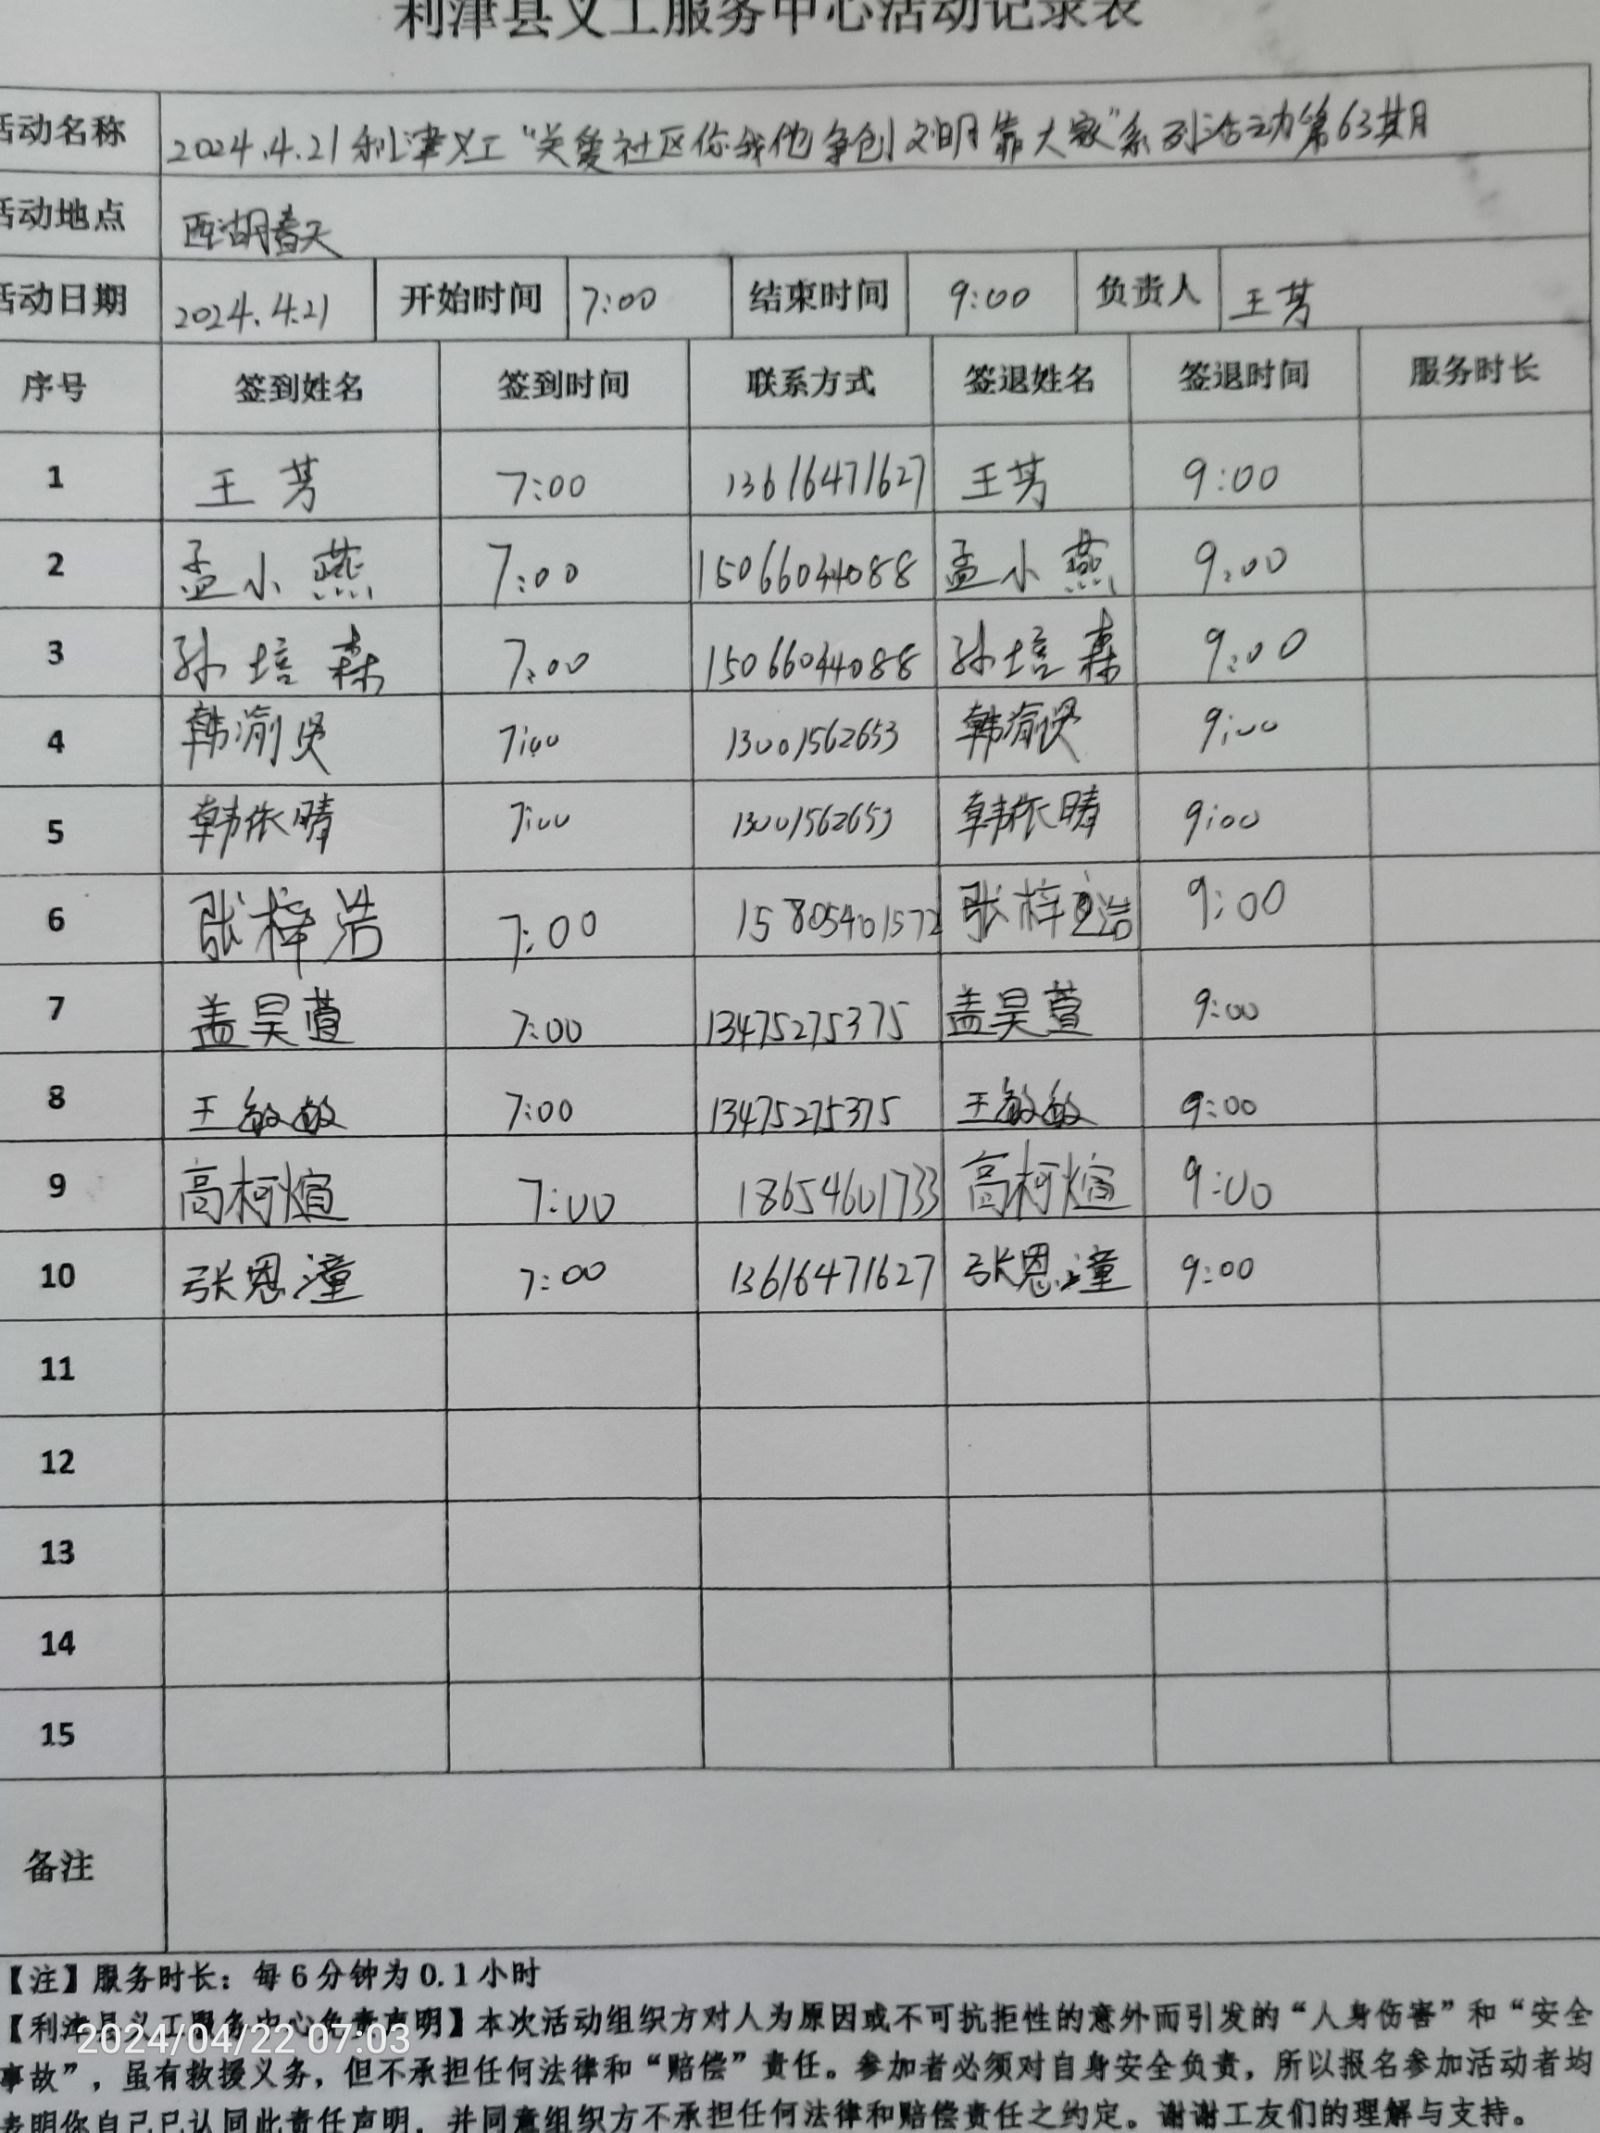 利津县义工服务中心活动记录表
活动名称 2024.4.21利津义工“关爱社区你我他争创文明靠大家”系列活动第63期
活动地点 西湖春天
活动日期 2024.4.21 开始时间 7:00 结束时间 9:00 负责人 王芳
序号 签到姓名 签到时间 联系方式 签退姓名 签退时间 服务时长
1 王芳 7:00 13616471627 王芳 9:00
2 孟小燕 7:00 15066044088 孟小燕 9:00
3 孙培森 7:00 15066044088 孙培森 9:00
4 韩渝贤 7:00 13001562653 韩渝贤 9:00
5 韩依晴 7:00 13001562653 韩依晴 9:00
6 张梓浩 7:00 15805401572 张梓浩 9:00
7 盖昊萱 7:00 13475275375 盖昊萱 9:00
8 王敏敏 7:00 13475275375 王敏敏 9:00
9 高柯煊 7:00 18654601733 高柯煊 9:00
10 张恩潼 7:00 13616471627 张恩潼 9:00
11
12
13
14
15
备注
【注】服务时长：每6分钟为0.1小时
【利津县义工服务中心免责声明】本次活动组织方对人为原因或不可抗拒性的意外而引发的“人身伤害”和“安全
事故”，虽有救援义务，但不承担任何法律和“赔偿”责任。参加者必须对自身安全负责，所以报名参加活动者均
表明你自己已认同此责任声明，并同意组织方不承担任何法律和赔偿责任之约定。谢谢工友们的理解与支持。
2024/04/22 07:03